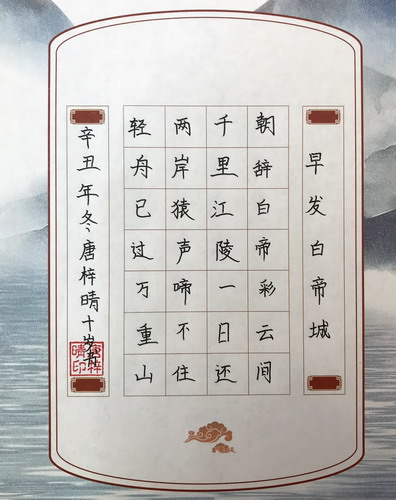 早发白帝城
朝辞白帝彩云间
千里江陵一日还
两岸猿声啼不住
轻舟已过万重山
辛丑年冬、唐梓晴十岁书
唐梓晴印